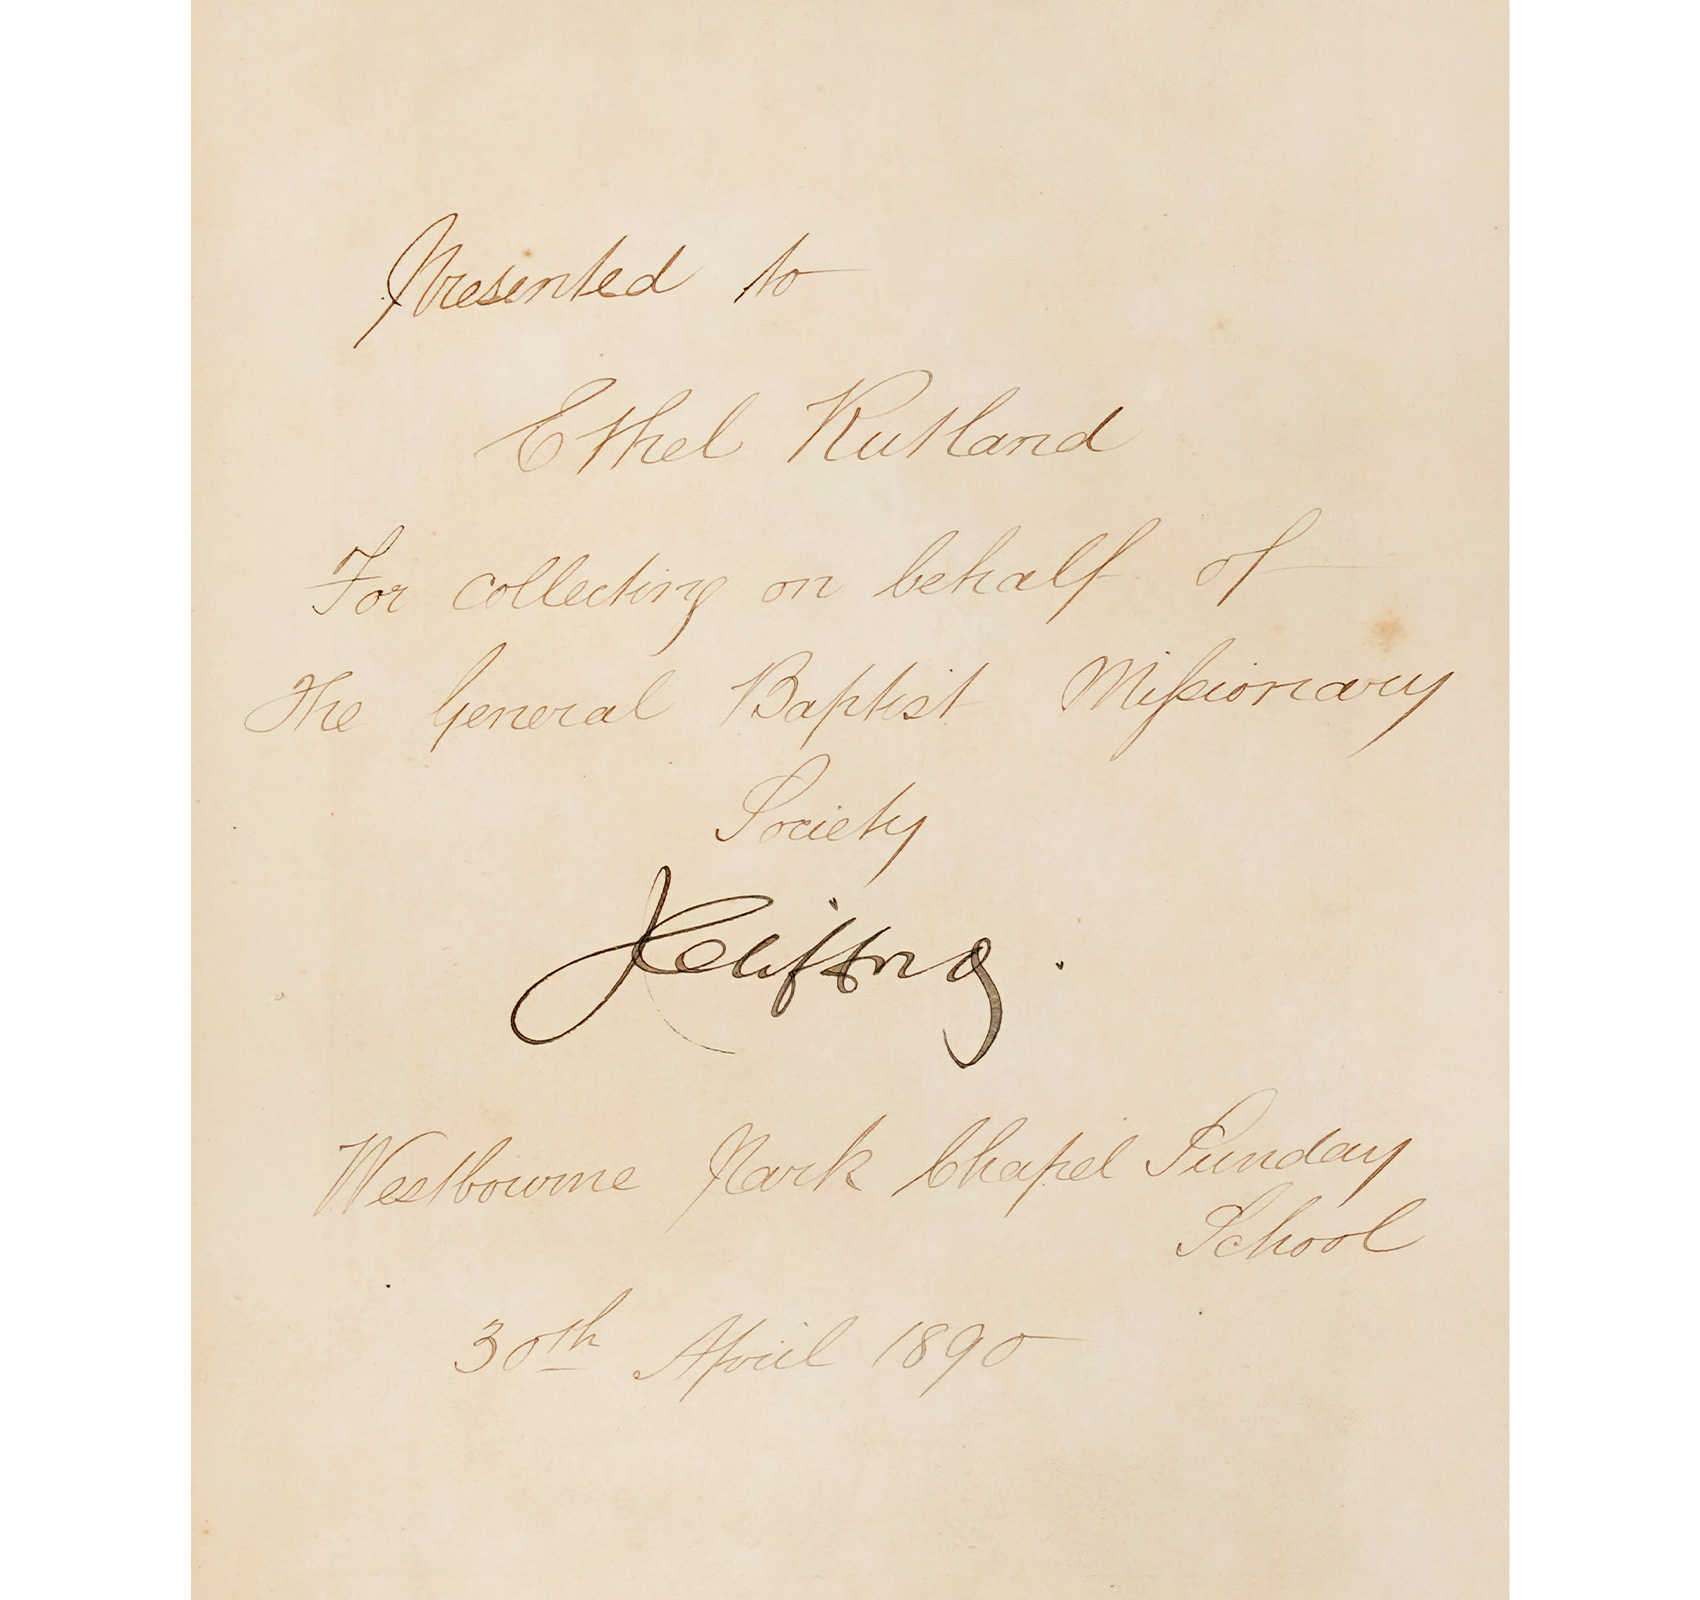 Presented to
Ethel Rutland
For collecting on behalf of
The General Baptist Miſsionary
Society
J Clifford.
Westbourne Park Chapel Sunday
School
30th April 1890